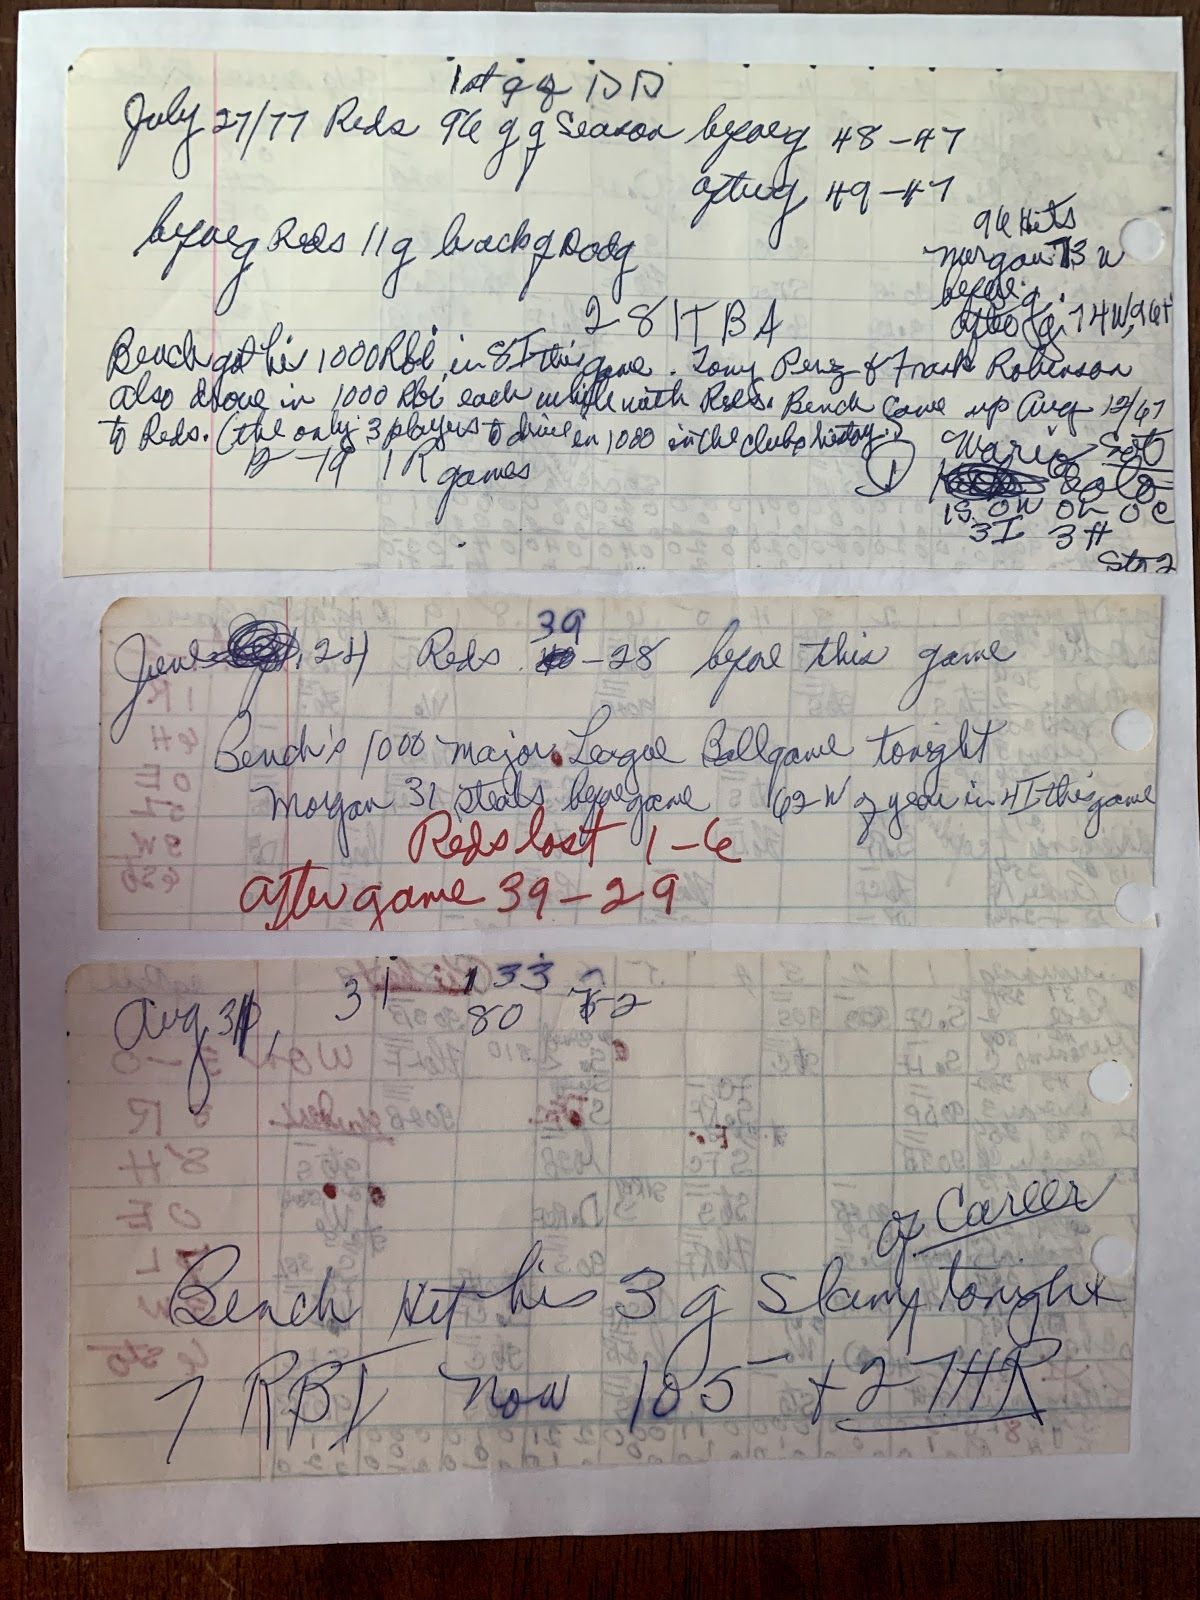 1st g of D D
July 27/77 Reds 96 g of Season before g 48-47
after g 49-47
before g Reds 11 g back of Dodg
96 Hits
Morgan 73 W
before g.
after g. 74 W, 96 H
28 ITBA
Bench got his 1000 Rbi in 8 I this game. Tony Perez & Frank Robinson
also drove in 1000 Rbi each while with Reds. Bench came up Aug 12/67
to Reds. (the only 3 players to drive in 1000 in the clubs history.)
12-19 1 R games
3 I 3 H
Sto 2
39
June 24 Reds -28 before this game
Bench's 1000 Major League Ballgame tonight
Morgan 31 steals before game 62 W of year in 4 I this game
Reds lost 1-6
After game 39-29
Aug 31, 31 133
80 52
of Career
Bench Hit his 3 g Slam tonight
7 RBI now 105 + 27 HR